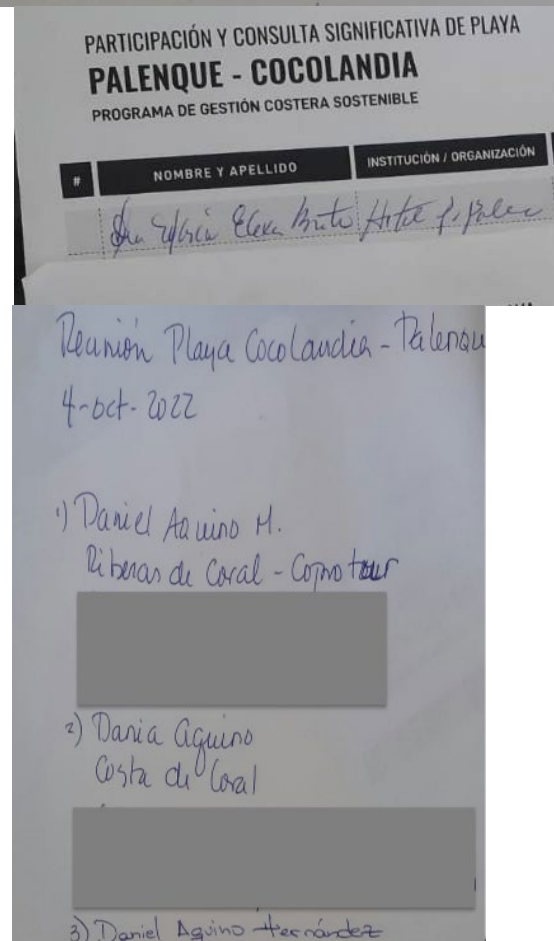 PARTICIPACIÓN Y CONSULTA SIGNIFICATIVA DE PLAYA
PALENQUE - COCOLANDIA
PROGRAMA DE GESTIÓN COSTERA SOSTENIBLE
# NOMBRE Y APELLIDO INSTITUCIÓN / ORGANIZACIÓN
Elena Brito Hotel
Reunión Playa Cocolandia - Palenqu
4-oct-2022
1) Daniel Aquino M.
Riberas de Coral -
2) Dania Aquino
Costa de Coral
3) Daniel Aquino Hernández